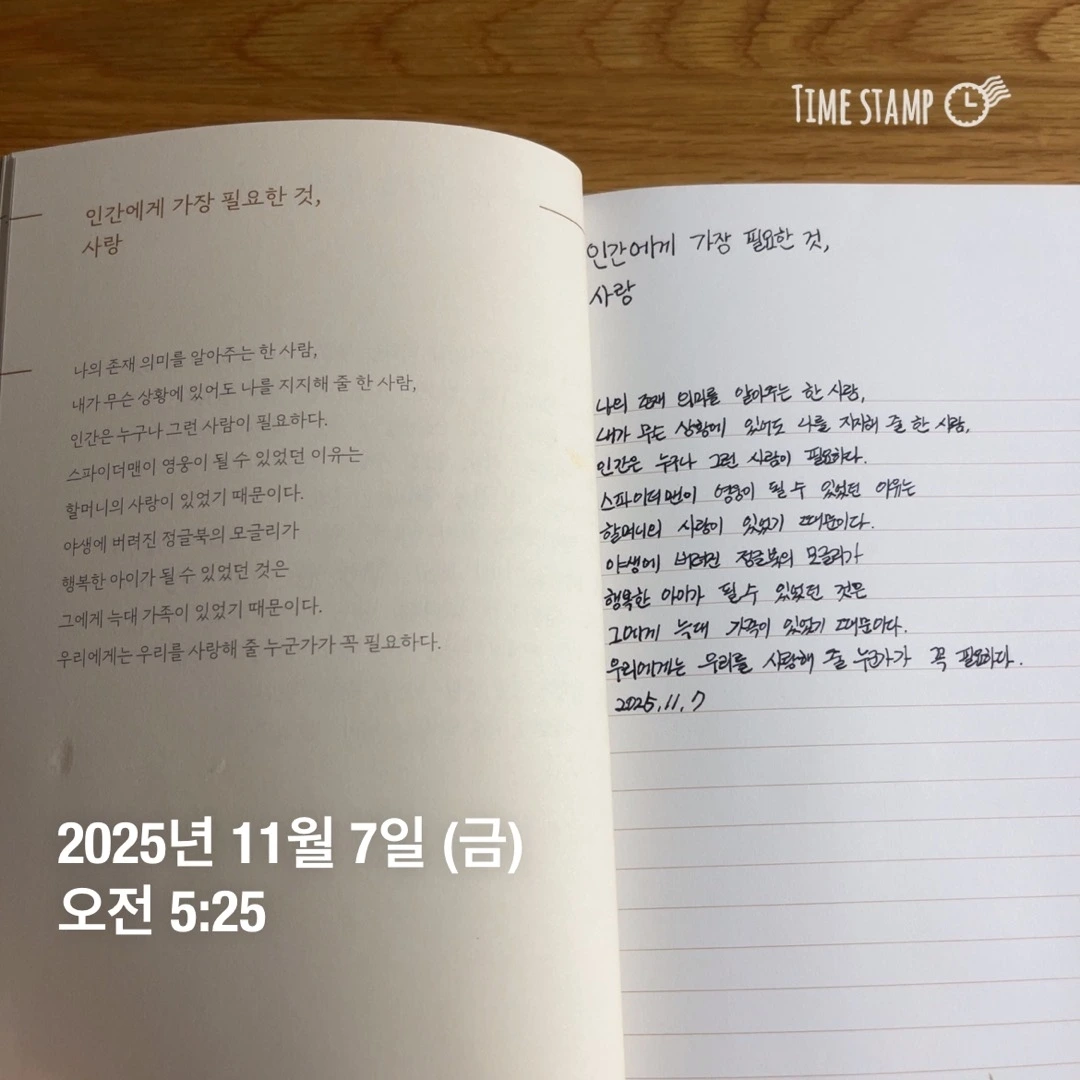 TIME STAMP
인간에게 가장 필요한 것,
사랑
나의 존재 의미를 알아주는 한 사람,
내가 무슨 상황에 있어도 나를 지지해 줄 한 사람,
인간은 누구나 그런 사람이 필요하다.
스파이더맨이 영웅이 될 수 있었던 이유는
할머니의 사랑이 있었기 때문이다.
야생에 버려진 정글북의 모글리가
행복한 아이가 될 수 있었던 것은
그에게 늑대 가족이 있었기 때문이다.
우리에게는 우리를 사랑해 줄 누군가가 꼭 필요하다.
인간에게 가장 필요한 것,
사랑
나의 존재 의미를 알아주는 한 사람,
내가 무슨 상황에 있어도 나를 지지해 줄 한 사람,
인간은 누구나 그런 사람이 필요하다.
스파이더맨이 영웅이 될 수 있었던 이유는
할머니의 사랑이 있었기 때문이다.
야생에 버려진 정글북의 모글리가
행복한 아이가 될 수 있었던 것은
그에게 늑대 가족이 있었기 때문이다.
우리에게는 우리를 사랑해 줄 누군가가 꼭 필요하다.
2025.11.7
2025년 11월 7일 (금)
오전 5:25